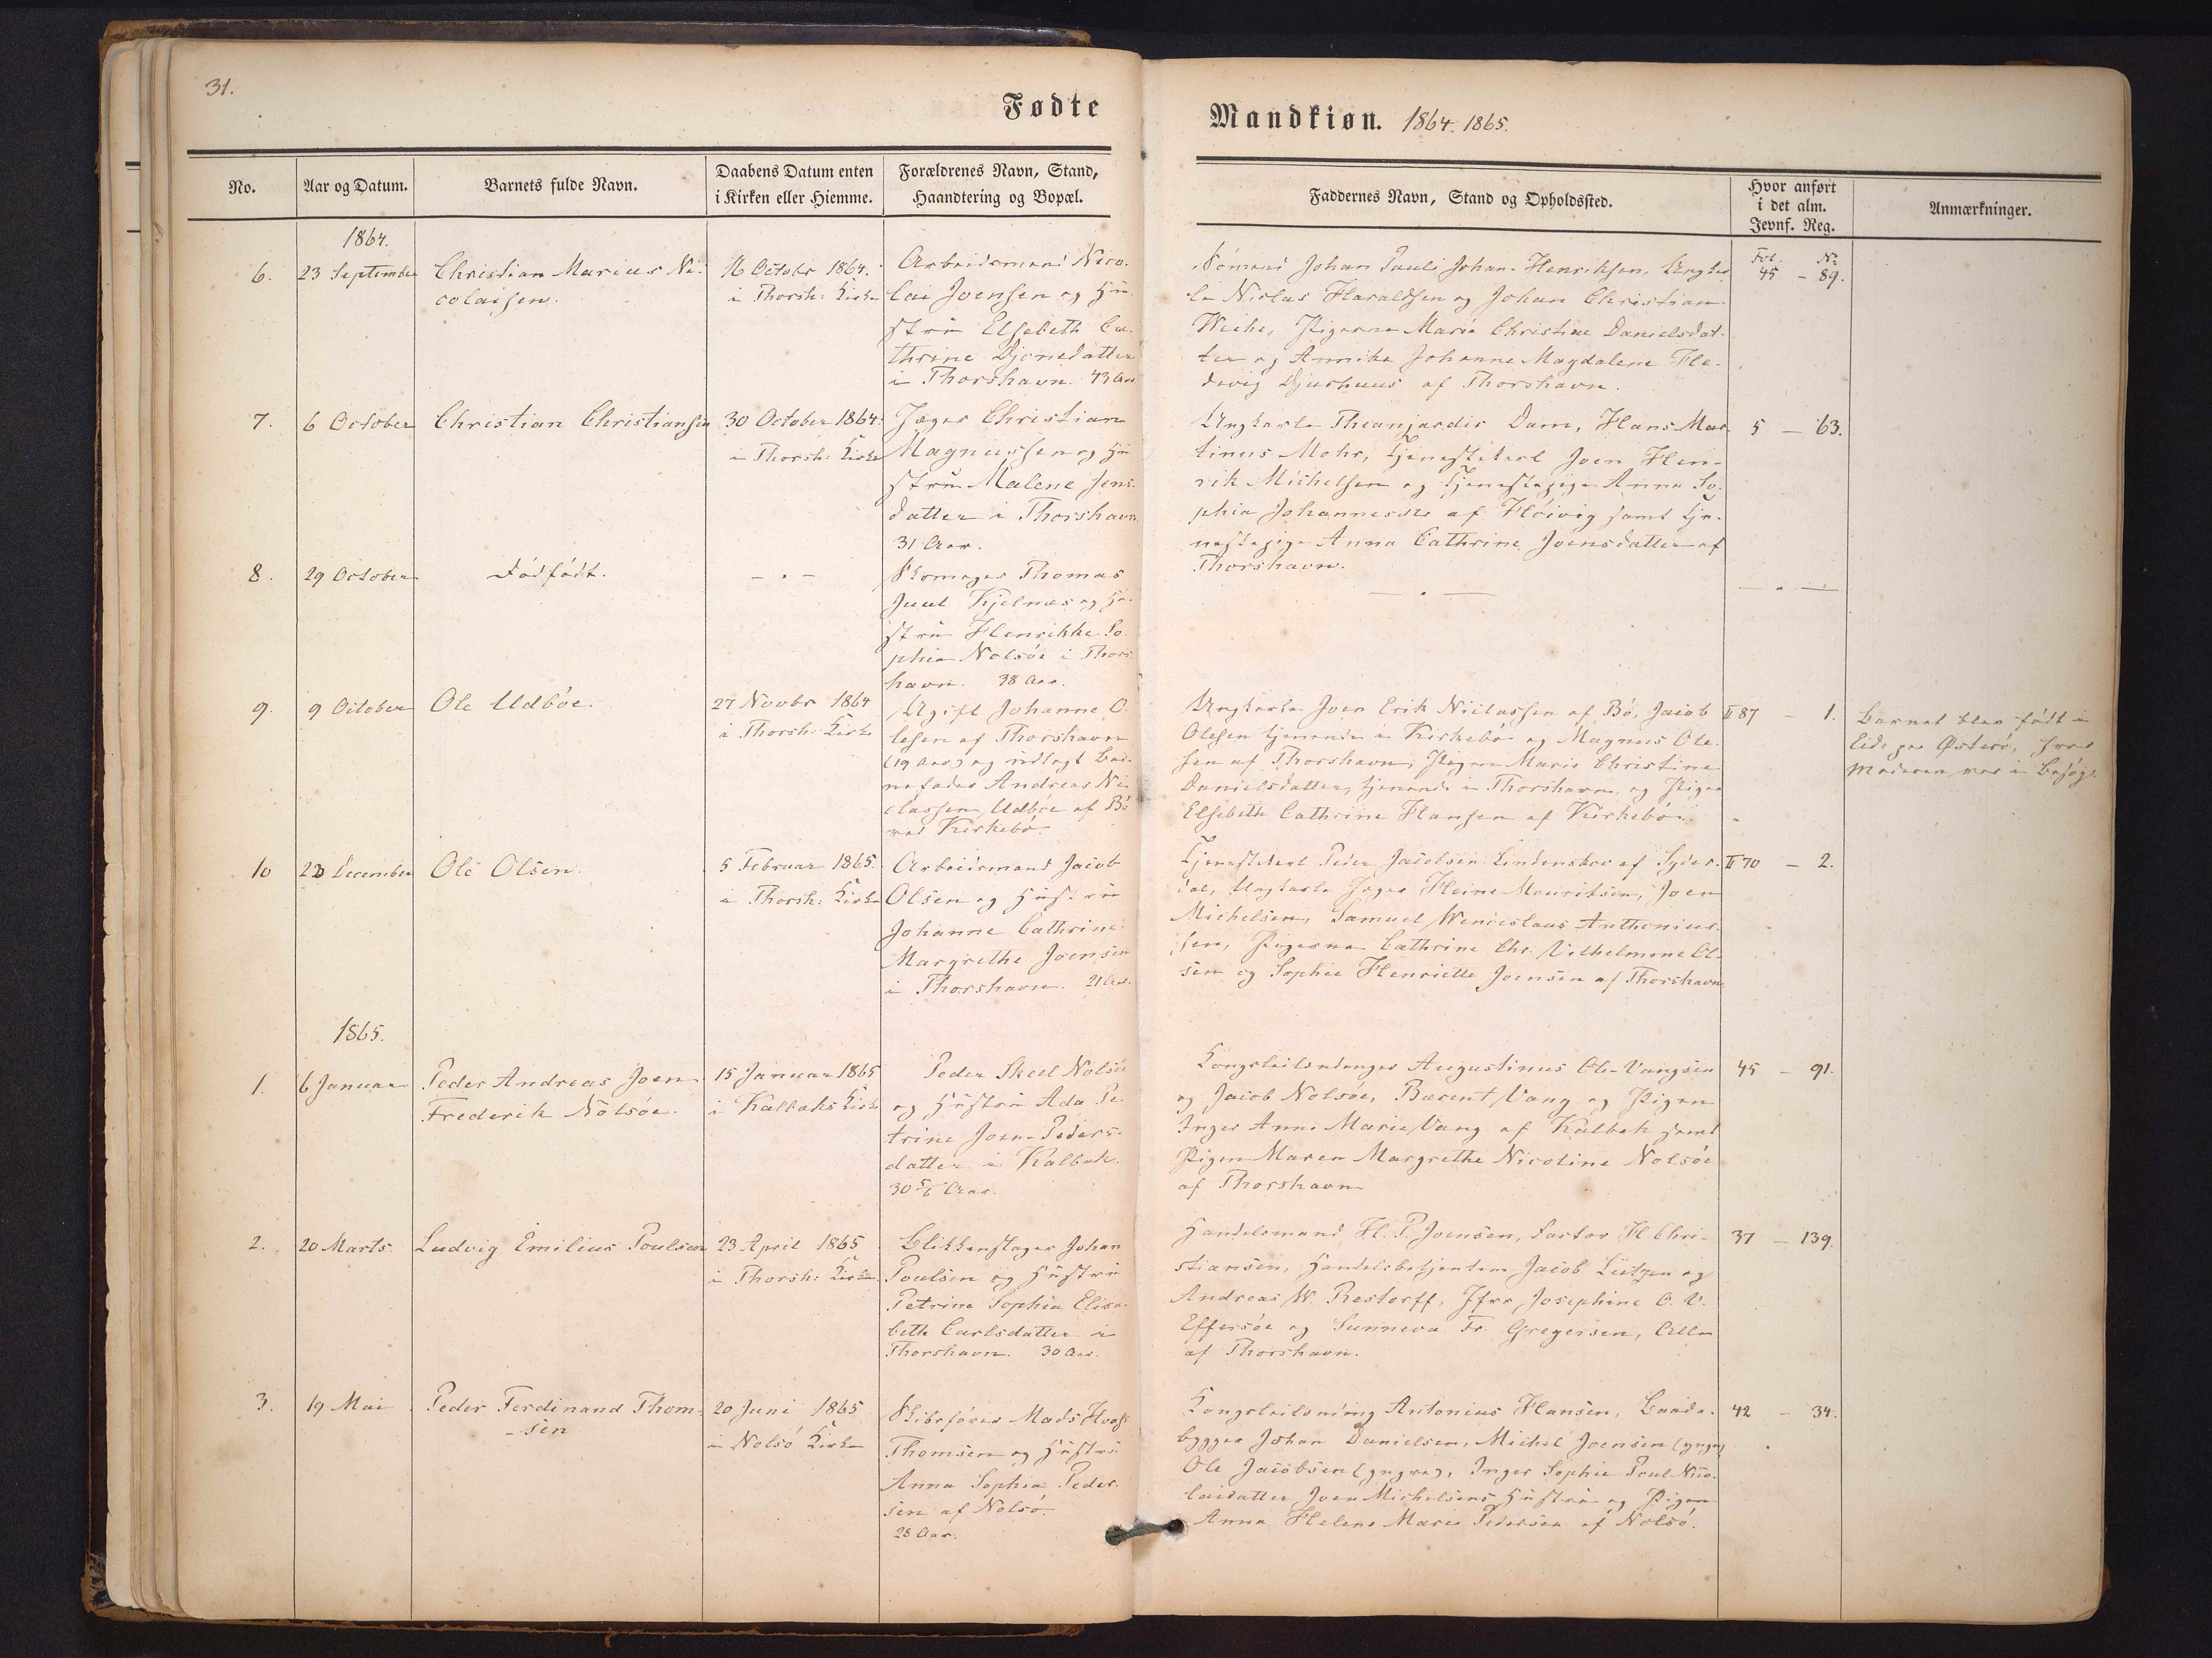 31.
Fødte
Mandkiøn. 1864. 1865.
No.
Aar og Datum.
Barnets fulde Navn.
Daabens Datum enten
i Kirken eller Hiemme.
Forældrenes Navn, Stand,
Haandtering og Bopæl.
Faddernes Navn, Stand og Opholdssted.
Hvor anført
i det alm.
Jevnf. Reg.
Anmærkninger.
1864.
6.
23 September
Christian Marius Ni-
colaisen.
16 Octobr 1864.
i Thorsh: Kirke
Arbeidsmand Nico-
lai Joensen og Hu-
stru Elsebeth Ca-
thrine Djonedatter
i Thorshavn. 43 Aar
Sømand Johan Pauli Johan-Henriksen, Ungkar-
le Niclas Haraldsen og Johan Christian
Weihe, Pigerne Maria Christine Danielsdat-
ter og Annike Johanne Magdalene He-
devig Djurhuus af Thorshavn.
Fol. No
45 - 89.
7.
6 October
Christian Christiansen
30 October 1864.
i Thorsh: Kirke
Jæger Christian
Magnussen og Hu-
stru Malene Jens-
datter i Thorshavn
31 Aar.
Ungkarle Theanjardis Dam, Hans Mar-
tinus Mohr, Tjenestekarl Joen Hen-
rik Michelsen og Tjenestepige Anna So-
phia Johannesdtr af Hoivig samt Tje-
nestepige Anna Cathrine Joensdatter af
Thorshavn.
5 - 63.
8.
29 October
Dødfødt.
- " -
Skomager Thomas
Juul Kjelnæs og Hu-
stru Henrikke So-
phia Nolsøe i Thors-
havn. 38 Aar.
- " -
- " -
9.
9 October
Ole Udbøe.
27 Novbr 1864
i Thorsh: Kirke
Ugift Johanne O-
lesen af Thorshavn
(19 Aar) og udlagt Bar-
nefader Andreas Ni-
classen Udbøe af Bø
ved Kirkebø.
Ungkarle Joen Erik Niclassen af Bø, Jacob
Olesen tjenende i Kirkebø og Magnus Ole-
sen af Thorshavn, Pigen Marie Christine
Danielsdatter, tjenende i Thorshavn, og Pigen
Elsebeth Cathrine Hansen af Kirkebø.
II 87 - 1.
Barnet blev født i
Eide paa Østerø, hvor
Moderen var i Besøg.
10
23 December
Ole Olsen.
5 Februar 1865.
i Thorsh: Kirke
Arbeidsmand Jacob
Olsen og Hustru
Johanne Cathrine
Margrethe Joensen
i Thorshavn. 21 Aar.
Tjenestekarl Peder Jacobsen Lindenskov af Syder-
dal, Ungkarle Jæger Heine Mouritsen, Joen
Michelsen, Samuel Wenceslaus Anthonius-
sen, Pigerne Cathrine Chr. Vilhelmine Ol-
sen og Sophie Henriette Joensen af Thorshavn
II 70 - 2.
1865.
1.
6 Januar
Peder Andreas Joen
Frederik Nolsøe.
15 Januar 1865
i Kalbaks Kirke
Peder Skeel Nolsøe
og Hustru Ada Pe-
trine Joen-Peders-
datter i Kalbak.
30 5/6 Aar.
Kongsleilændinger Augustinus Ole-Vangsen
og Jacob Nolsøe, Barent Vang og Pigen
Inger Anne Marie Vang af Kalbak samt
Pigen Maren Margrethe Nicoline Nolsøe
af Thorshavn
45 - 91.
2.
20 Marts
Ludvig Emilius Poulsen
23 April 1865
i Thorsh: Kirke
Blikkenslager Johan
Poulsen og Hustru
Petrine Sophia Elisa-
beth Carlsdatter i
Thorshavn. 30 Aar.
Handelsmand H. P. Joensen, Factor H. Chri-
stiansen, Handelsbetjentene Jacob Lützen og
Andreas W. Restorff, Jfrr Josephine C. V.
Effersøe og Sunneva Fr. Gregersen, Alle
af Thorshavn.
37 - 139.
3.
19 Mai
Peder Ferdinand Thom-
-sen
20 Juni 1865
i Nolsø Kirke
Skibsfører Mads
Thomsen og Hustru
Anna Sophia Peder-
sen af Nolsø.
28 Aar.
Kongsleilænding Antonius Hansen, Baade-
bygger Johan Danielsen, Michel Joensen (yngre)
Ole Jacobsen (yngre), Inger Sophie Poul Nico-
laidatter Joen Michelsens Hustru og Pigen
Anna Helene Marie Pedersen af Nolsø.
42 - 34.